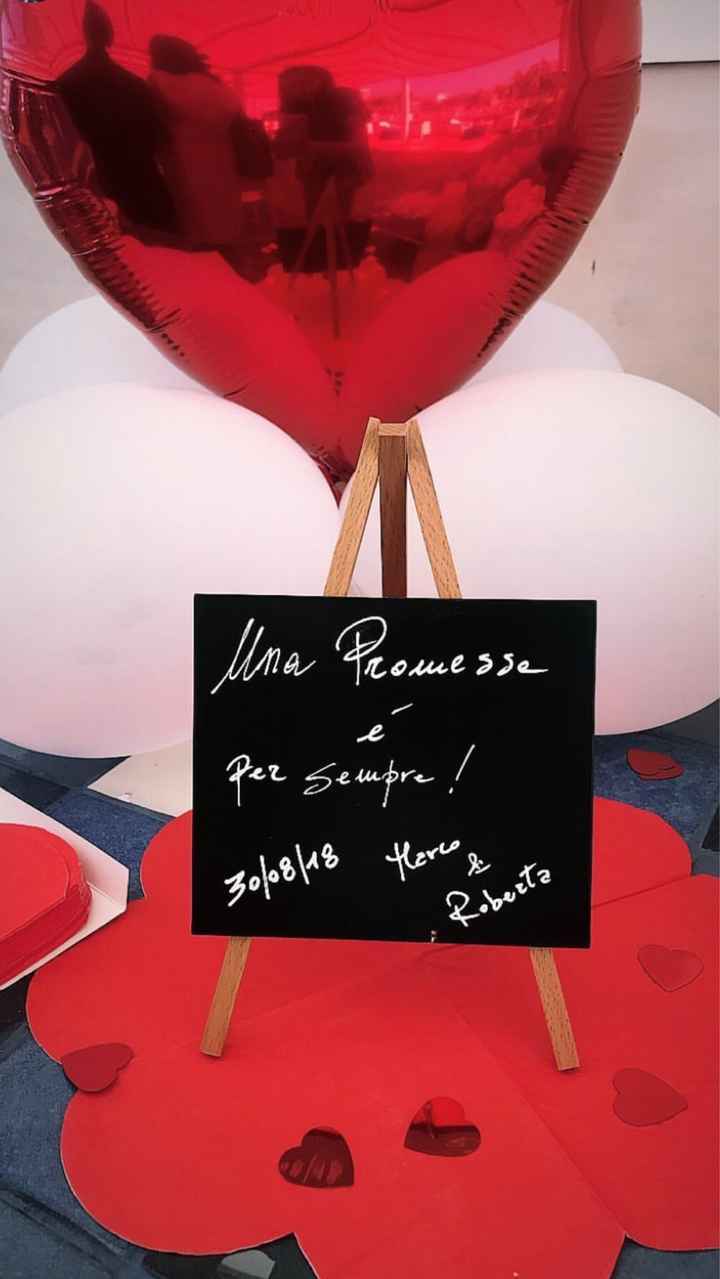 Una Promessa
é
Per sempre!
30/08/18 Marco
&
Roberta